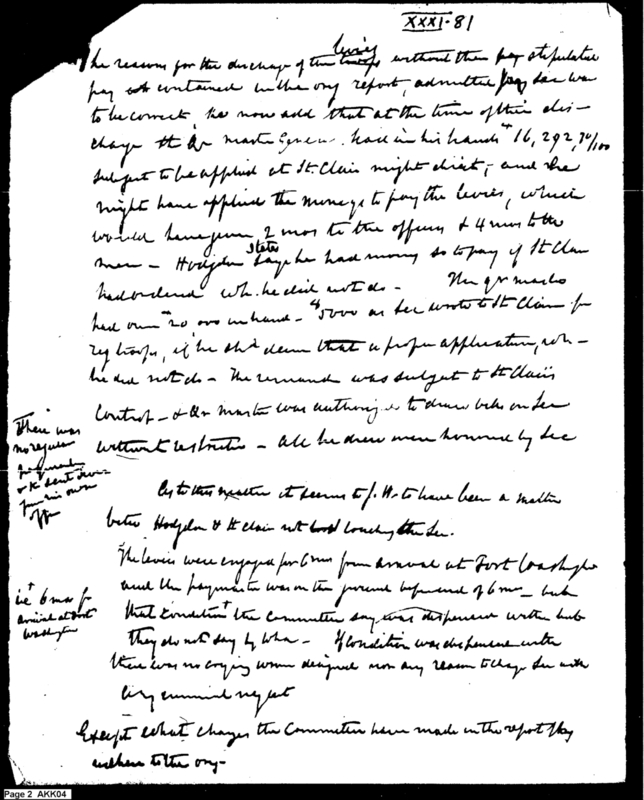 XXXI-81
The reasons for the discharge of the levies without their pay stipulated
pay not contained in the orig report, admitted Secy was
to be correct, he now add that at the time of their dis-
charge the Qr master General had in his hands $16,292,74/100
subject to be applied as St. Clair might direct, and he
might have applied the money to pay the levies, which
would have given 2 mos to the officers & 4 mos to the
men - Hodgdon states he had money so to pay if St Clair
had ordered wh. he did not do - The qr master
had over $20,000 in hand - $5000 as Sec wrote to St Clair for
reg troops, if he shd deem that a proper application, wh -
he did not do - The remaind was subject to St Clair's
control - & Qr master was authorized to draw bills on Sec
without restriction - all he drew were honoured by Sec
There was
no regular
paymaster
& K sent down
from his own
offr
As to this matter it seems to to have been a matter
betw Hodgdon & St Clair not touching the Sec.
The levies were engaged for 6 mos from arrival at Fort Washington
and the paymaster was on the ground before end of 6 mos - but
that condition the committee say was dispensed with but
they do not say by whom - If condition was dispensed with
there was no crying designed nor any reason to charge Sec with
any criminal neglect
ie 6 mos fr
arrival at Fort
Washington
Except what changes the Committee have made in the report they
adhere to the orig -
Page 2 AKK04